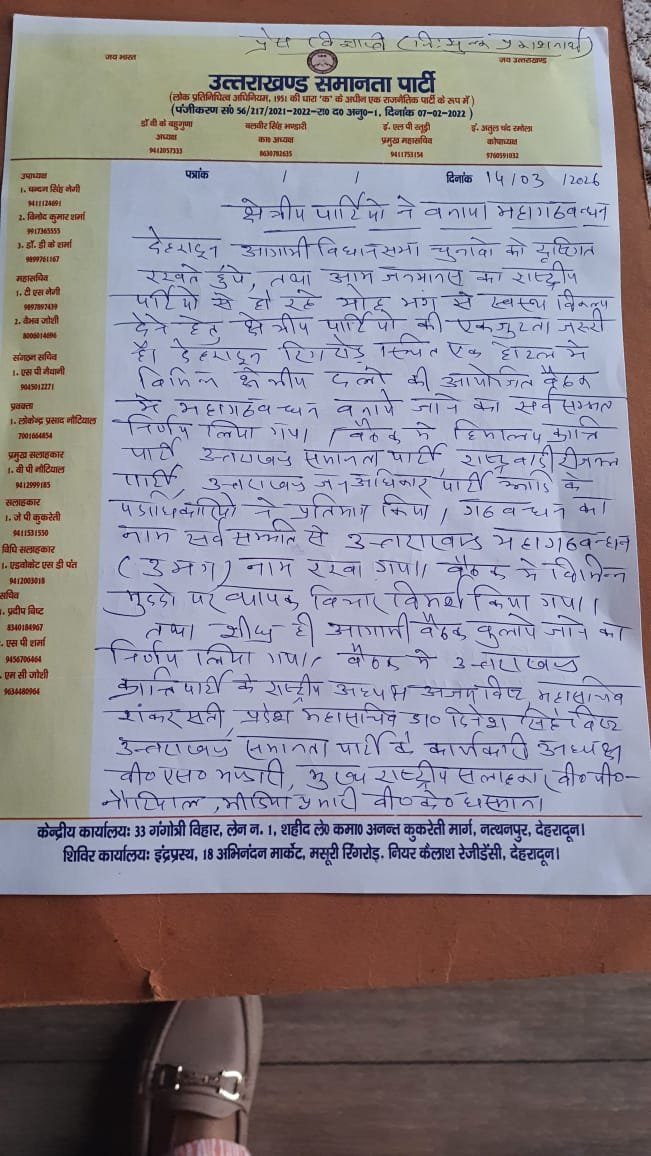 प्रेस विज्ञप्ति (निःशुल्क प्रकाशनार्थ)
जय भारत
जय उत्तराखण्ड
उत्तराखण्ड समानता पार्टी
(लोक प्रतिनिधित्व अधिनियम, 1951 की धारा 'क' के अधीन एक राजनैतिक पार्टी के रूप में)
(पंजीकरण सं0 56/217/2021-2022-रा0 द0 अनु0-1, दिनांक 07-02-2022)
डॉ वी के बहुगुणा
अध्यक्ष
9412057333
बलवीर सिंह भण्डारी
का0 अध्यक्ष
8630782635
इं. एल पी रतूड़ी
प्रमुख महासचिव
9411753154
इं. अतुल चंद रमोला
कोषाध्यक्ष
9760591032
पत्रांक / /
दिनांक 14/03/2026
उपाध्यक्ष
1. चन्दन सिंह नेगी
9411124691
2. विनोद कुमार शर्मा
9917365555
3. डॉ. डी के शर्मा
9899761167
महासचिव
1. टी एस नेगी
9897897439
2. वैभव जोशी
8006014696
संगठन सचिव
1. एस पी नैथानी
9045012271
प्रवक्ता
1. लोकेन्द्र प्रसाद नौटियाल
7001664854
प्रमुख सलाहकार
1. वी पी नौटियाल
9412999185
सलाहकार
1. जे पी कुकरेती
9411531550
विधि सलाहकार
1. एडवोकेट एस डी पंत
9412003018
सचिव
. प्रदीप बिष्ट
8340184967
. एस पी शर्मा
9456706464
एम सी जोशी
9634480964
क्षेत्रीय पार्टियो ने बनाया महागठबन्धन
देहरादून आगामी विधानसभा चुनावो को दृष्टिगत
रखते हुये, तथा आम जनमानस का राष्ट्रीय
पार्टियो से हो रहे मोह भंग से स्वस्थ विकल्प
देने हेतु क्षेत्रीय पार्टियो की एकजुटता जरूरी
है। देहरादून रिंगरोड़ स्थित एक होटल मे
विभिन्न क्षेत्रीय दलो की आयोजित बैठक
मे महागठबन्धन बनाये जाने का सर्वसम्मत
निर्णय लिया गया। बैठक मे हिमालय क्रान्ति
पार्टी उत्तराखण्ड समानता पार्टी, राष्ट्रवादी रीजनल
पार्टी, उत्तराखण्ड जनअधिकार पार्टी आदि के
पदाधिकारियो ने प्रतिभाग किया, गठबन्धन का
नाम सर्वसम्मति से उत्तराखण्ड महागठबन्धन
(उमग) नाम रखा गया। बैठक मे विभिन्न
मुद्दो पर व्यापक विचार विमर्श किया गया।
तथा शीघ्र ही आगामी बैठक बुलाये जाने का
निर्णय लिया गया। बैठक मे उत्तराखण्ड
क्रान्ति पार्टी के राष्ट्रीय अध्यक्ष अजय बिष्ट, महासचिव
शंकर सती, प्रदेश महासचिव डा० दिनेश सिंह बिष्ट
उत्तराखण्ड समानता पार्टी के कार्यकारी अध्यक्ष
वी० एस० भण्डारी, मुख्य राष्ट्रीय सलाहकार वी० पी०-
नौटियाल, मीडिया प्रभारी वी० के० धस्माना
केन्द्रीय कार्यालयः 33 गंगोत्री विहार, लेन न. 1, शहीद ले0 कमा0 अनन्त कुकरेती मार्ग, नत्थनपुर, देहरादून।
शिविर कार्यालयः इंद्रप्रस्थ, 18 अभिनंदन मार्केट, मसूरी रिंगरोड़. नियर कैलाश रेजीडेंसी, देहरादून।